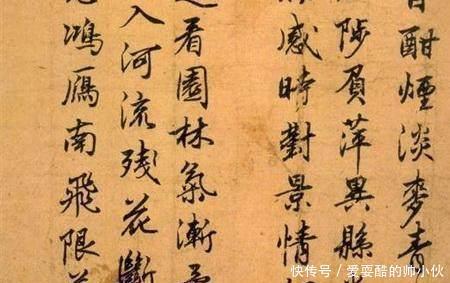 酣煙淡麥青
萍異縣
感時對景情
看園林氣漸
入河流残花斷
鴻鴈南飛限
快传号 / 爱耍酷的帅小伙